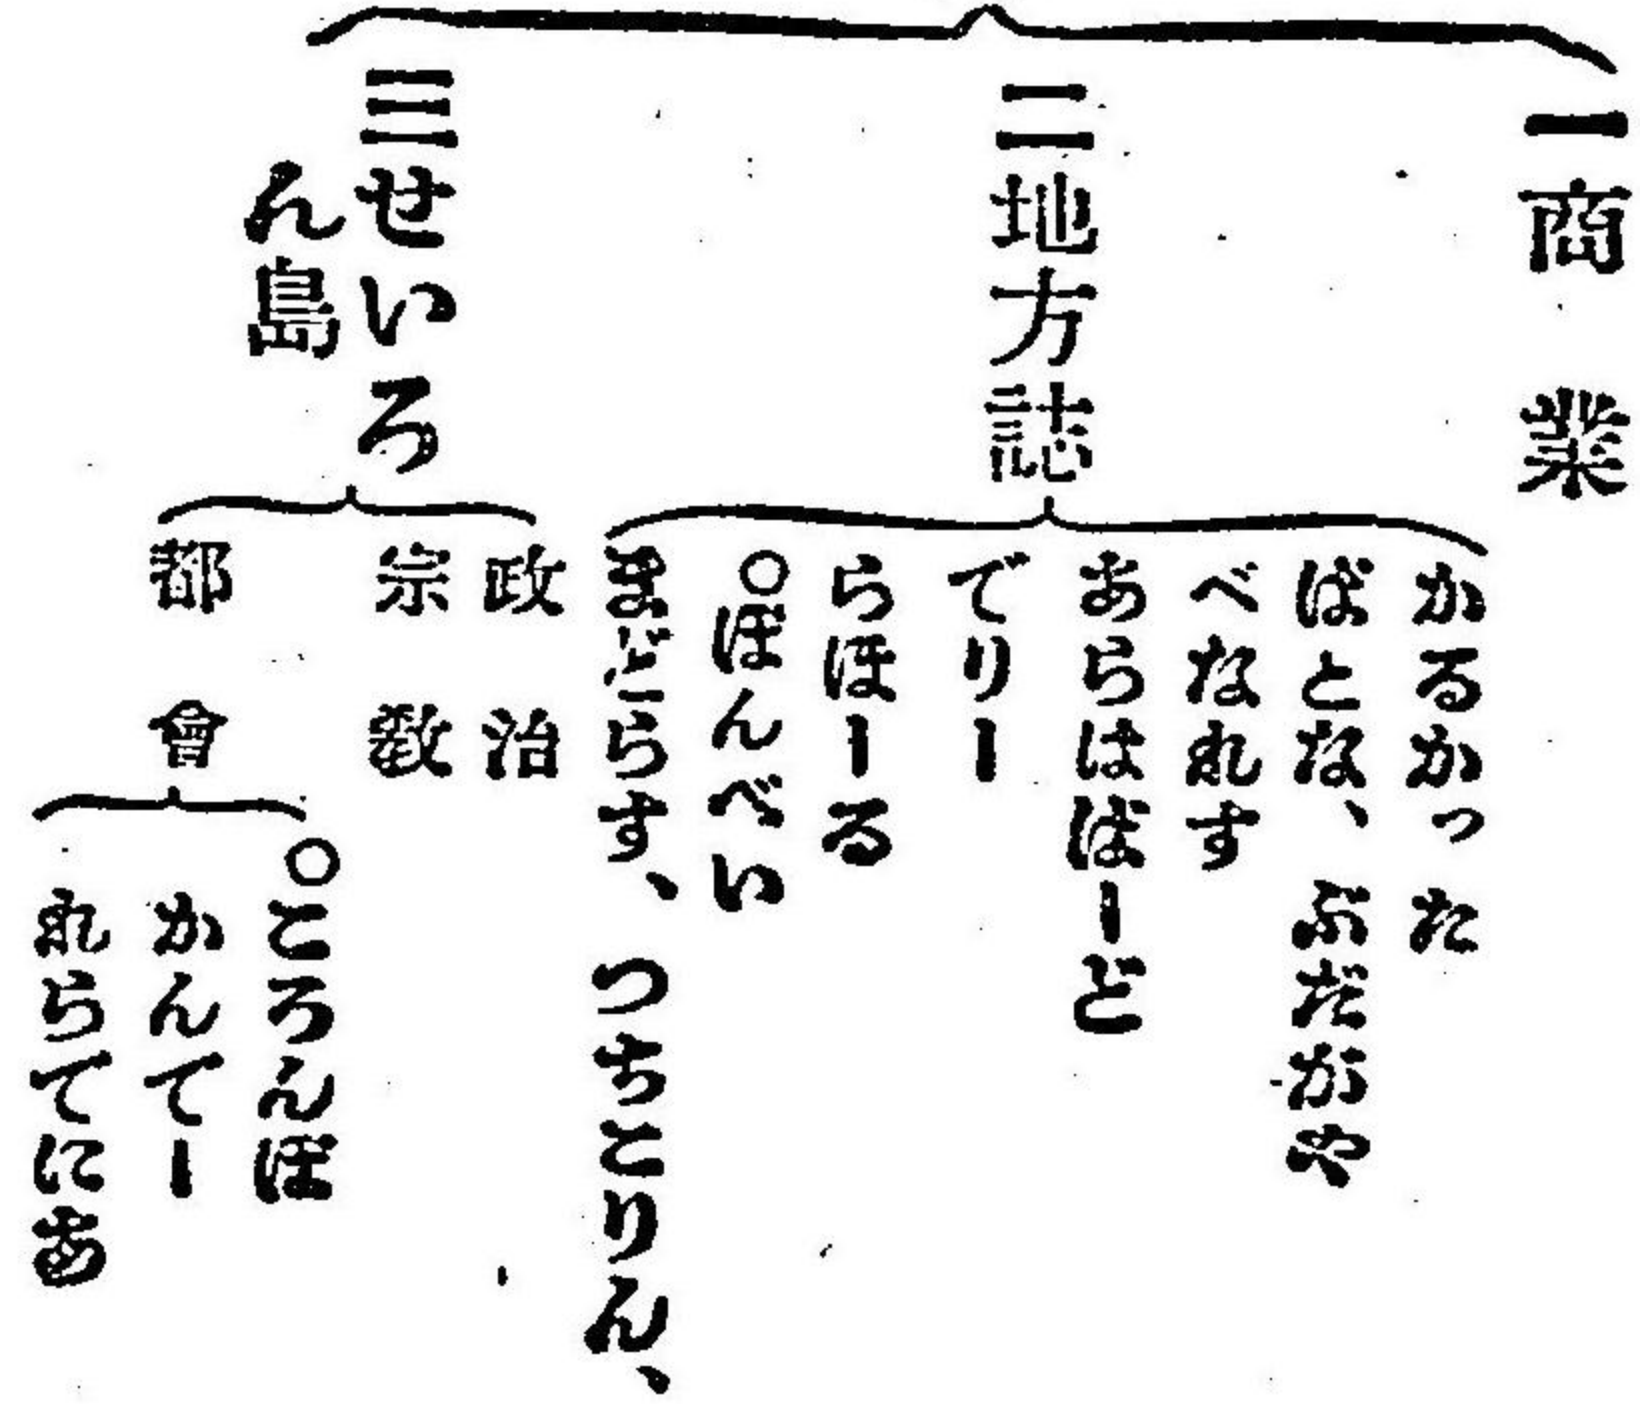 一商業
二地方誌
かるかった
ぱとな、ぶだがや
べなれす
あらはばーど
でりー
らほーる
○ぼんべい
まどらす、つちこりん、
三せいろ
ん島
政治
宗教
都會
○ころんぼ
かんてー
れらてにあ